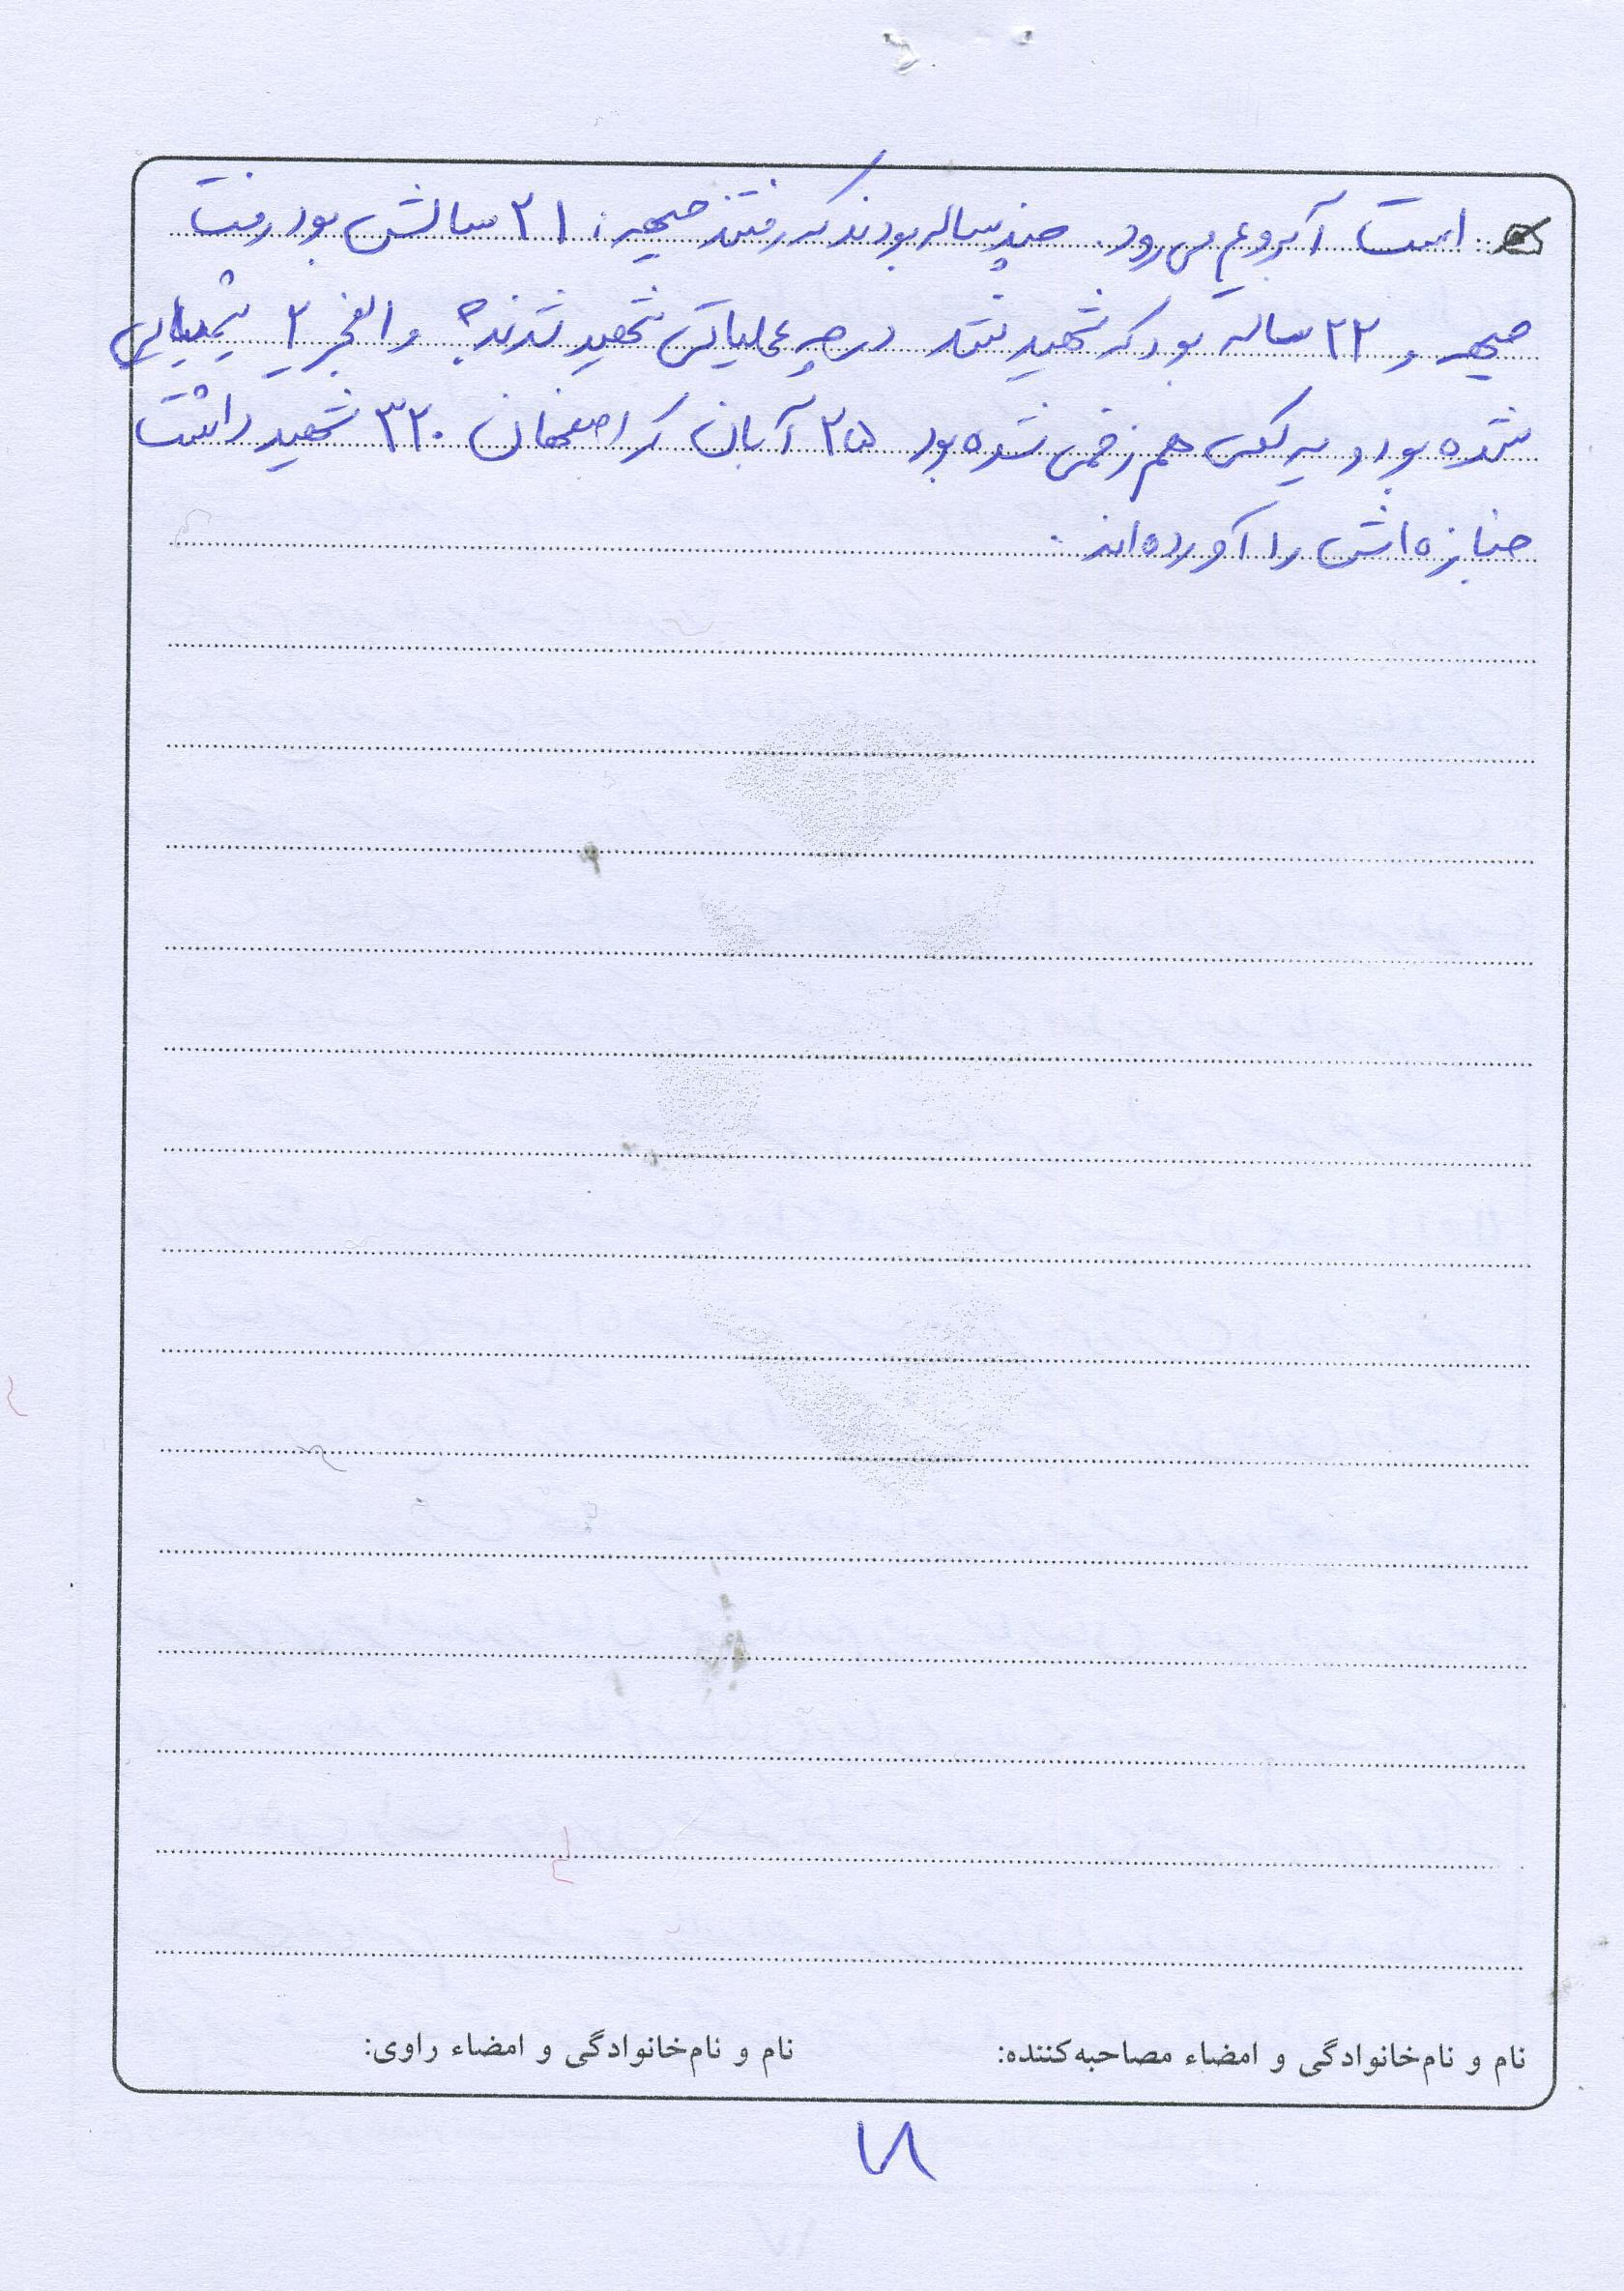 است آبرویم می‌رود. چند ساله بودند که رفتند جبهه؟ ۲۱ سالش بود رفت
جبهه و ۲۲ ساله بود که شهید شد در چه عملیاتی شهید شدند؟ والفجر ۲ شیمیایی
شده بود و یکی هم زخمی شده بود ۲۵ آبان که اصفهان ۳۲۰ شهید داشت
جنازه‌اش را آورده‌اند.
نام و نام‌خانوادگی و امضاء مصاحبه‌کننده: نام و نام‌خانوادگی و امضاء راوی: